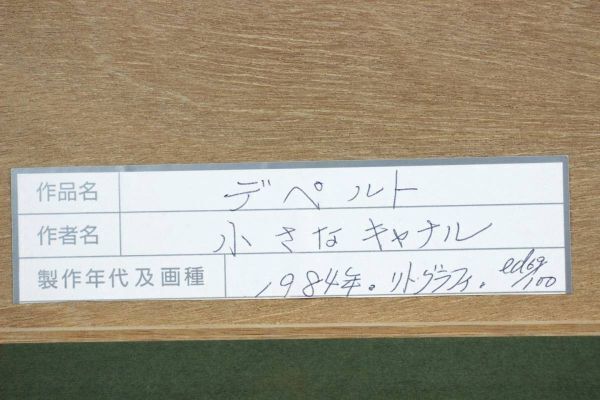 作品名 デペルト
作者名 小さなキャナル
製作年代及画種 1984年。リトグラフィ。ed69/100